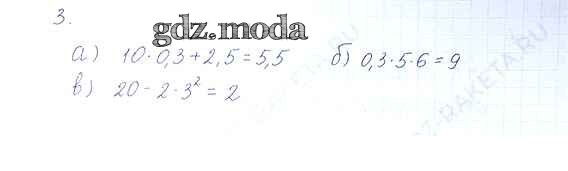 3.
gdz.moda
а) 10·0,3+2,5=5,5 б) 0,3·5·6=9
в) 20-2·3²=2
Z-RAKETA.RU